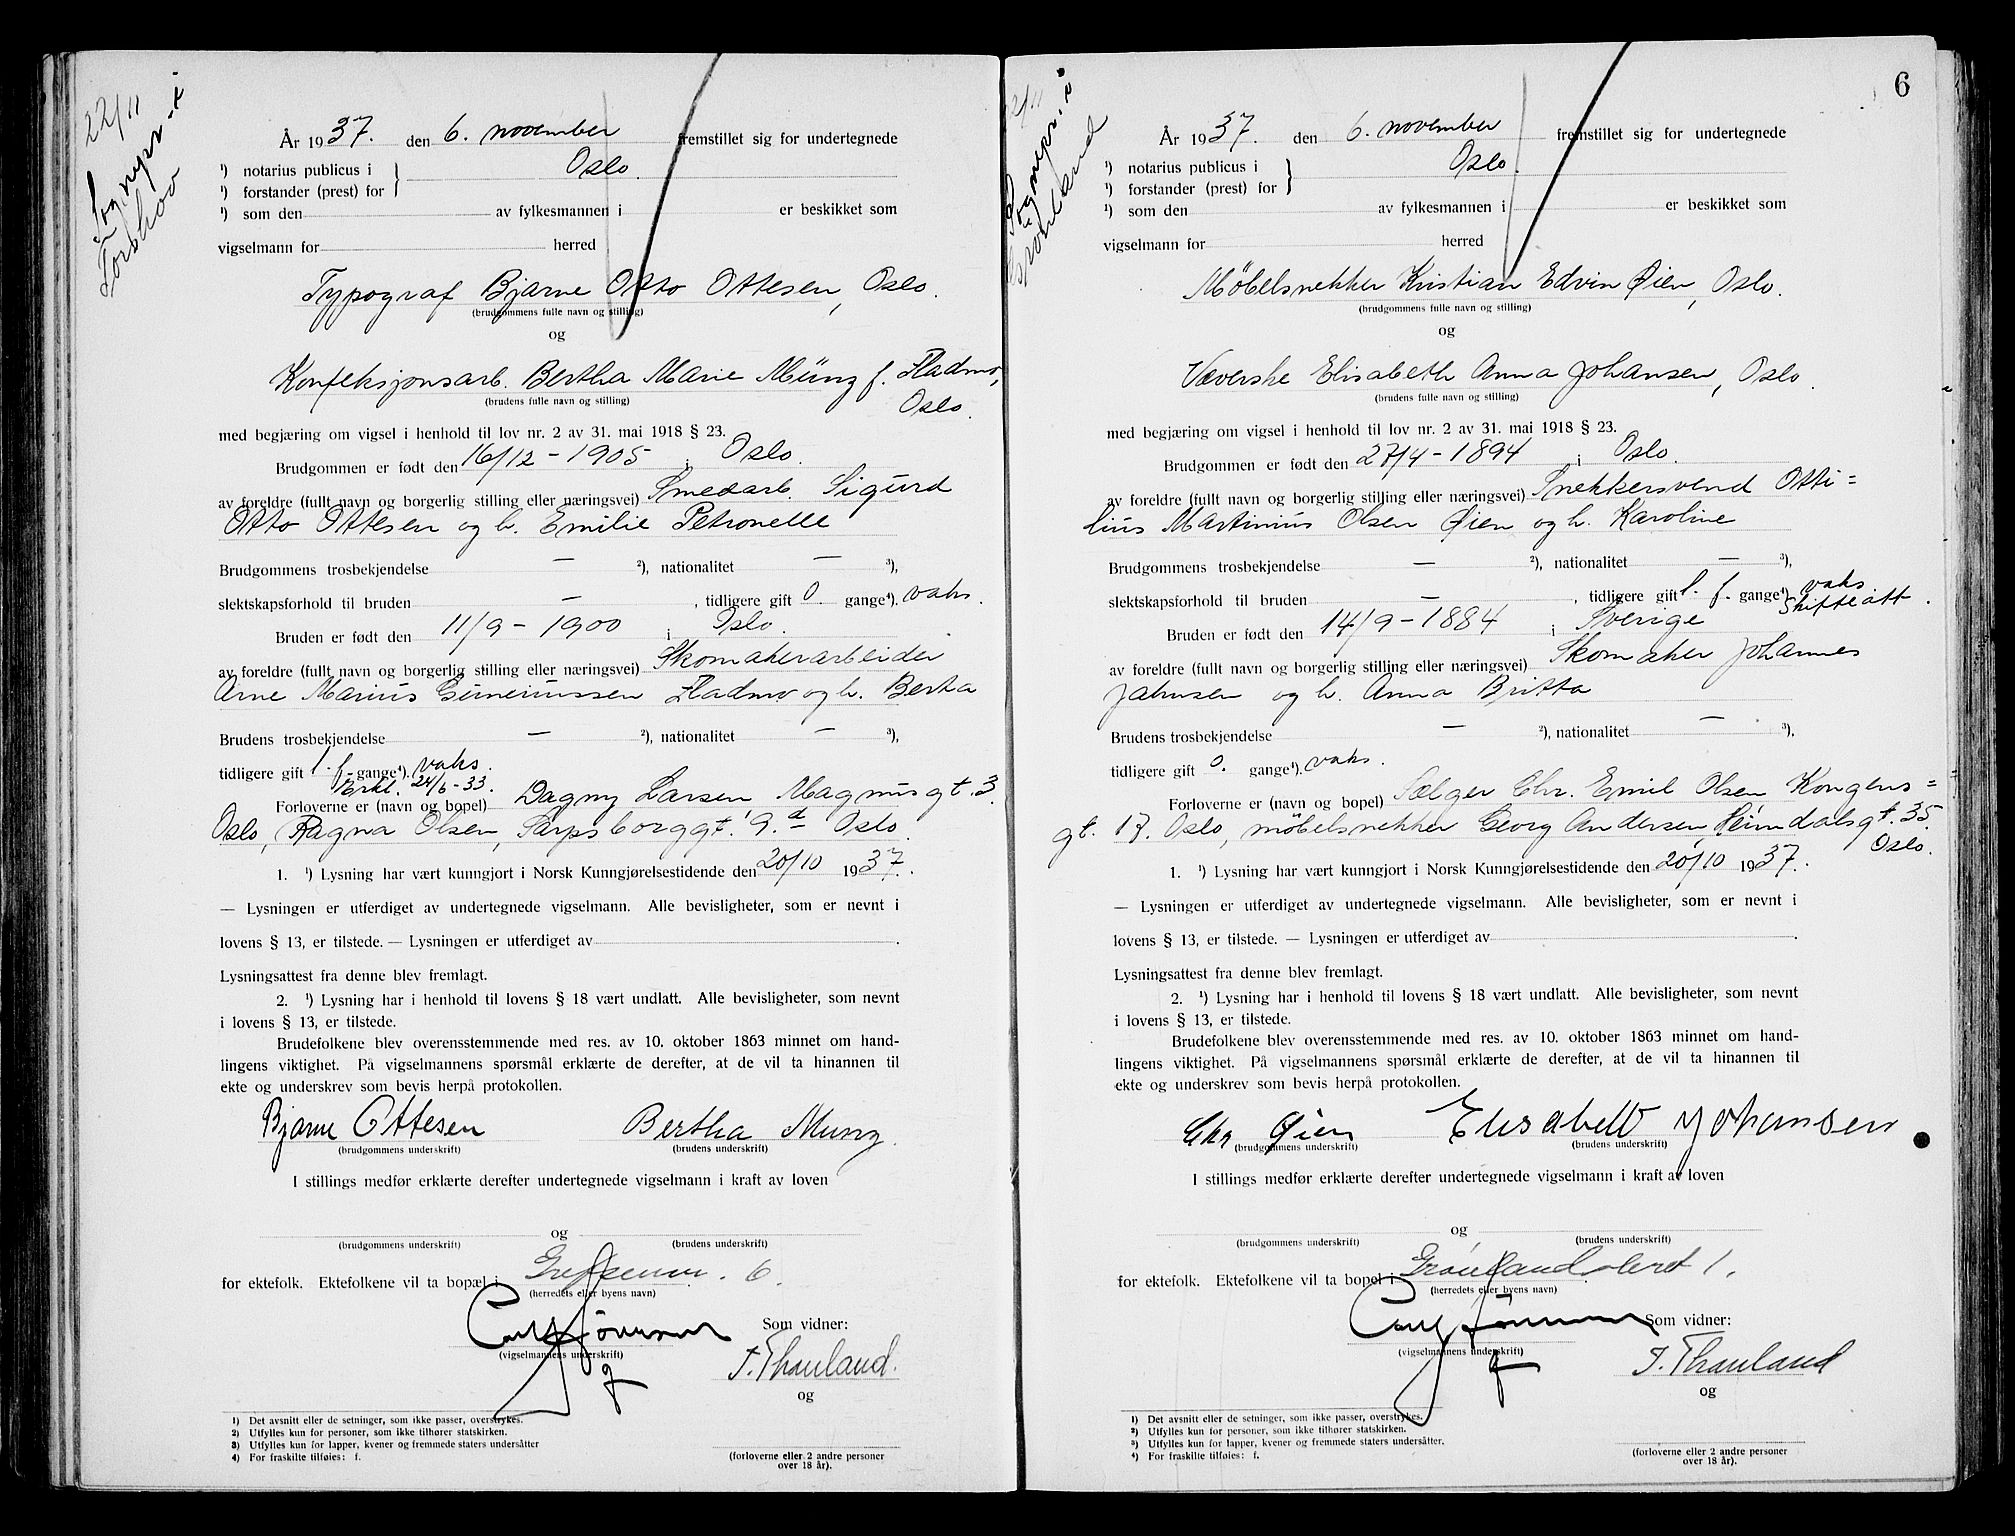 22/11
Sognepr. i
Torshov
År 1937. den 6. november fremstillet sig for undertegnede
¹) notarius publicus i
¹) forstander (prest) for } Oslo.
¹) som den av fylkesmannen i er beskikket som
vigselmann for herred
Typograf Bjarne Otto Ottesen, Oslo.
(brudgommens fulle navn og stilling)
og
Konfeksjonsarb. Bertha Marie Münz f. Fladmo,
Oslo.
(brudens fulle navn og stilling)
med begjæring om vigsel i henhold til lov nr. 2 av 31. mai 1918 § 23.
Brudgommen er født den 16/12 - 1905 i Oslo.
av foreldre (fullt navn og borgerlig stilling eller næringsvei) Smedarb. Sigurd
Otto Ottesen og h. Emilie Petronelle
Brudgommens trosbekjendelse — ²), nationalitet — ³),
slektskapsforhold til bruden — , tidligere gift 0. gange⁴). vaks.
Bruden er født den 11/9 - 1900 i Oslo.
av foreldre (fullt navn og borgerlig stilling eller næringsvei) Skomakerarbeider
Arne Marius Guneriussen Fladmo og h. Berta
Brudens trosbekjendelse — ²), nationalitet — ³),
tidligere gift 1. f. gange⁴). vaks.
Erkl. 24/6-33.
Forloverne er (navn og bopel) Dagny Larsen Magnusgt. 3
Oslo, Ragna Olsen, Sarpsborggt. 9.d Oslo.
1. ¹) Lysning har vært kunngjort i Norsk Kunngjørelsestidende den 20/10 1937.
— Lysningen er utferdiget av undertegnede vigselmann. Alle bevisligheter, som er nevnt i
lovens § 13, er tilstede. — Lysningen er utferdiget av
Lysningsattest fra denne blev fremlagt.
2. ¹) Lysning har i henhold til lovens § 18 vært undlatt. Alle bevisligheter, som nevnt
i lovens § 13, er tilstede.
Brudefolkene blev overensstemmende med res. av 10. oktober 1863 minnet om hand-
lingens viktighet. På vigselmannens spørsmål erklærte de derefter, at de vil ta hinannen til
ekte og underskrev som bevis herpå protokollen.
Bjarne Ottesen Bertha Munz.
(brudgommens underskrift) (brudens underskrift)
I stillings medfør erklærte derefter undertegnede vigselmann i kraft av loven
og
(brudgommens underskrift) (brudens underskrift)
for ektefolk. Ektefolkene vil ta bopæl i Grefsenvn. 6.
(herredets eller byens navn)
Som vidner:
(vigselmannens underskrift)
F. Thauland.
og
1) Det avsnitt eller de setninger, som ikke passer, overstrykes.
2) Utfylles kun for personer, som ikke tilhører statskirken.
3) Utfylles kun for lapper, kvener og fremmede staters undersåtter
4) For fraskilte tilføies: f.
(forloverne eller 2 andre personer
over 18 år).
6
22/11
Sognepr. i
Grønland
År 1937. den 6. november fremstillet sig for undertegnede
¹) notarius publicus i
¹) forstander (prest) for } Oslo.
¹) som den av fylkesmannen i er beskikket som
vigselmann for herred
Møbelsnekker Kristian Edvin Øien, Oslo.
(brudgommens fulle navn og stilling)
og
Væverske Elisabeth Anna Johansen, Oslo.
(brudens fulle navn og stilling)
med begjæring om vigsel i henhold til lov nr. 2 av 31. mai 1918 § 23.
Brudgommen er født den 27/4 - 1894 i Oslo.
av foreldre (fullt navn og borgerlig stilling eller næringsvei) Snekkersvend Otti=
lius Martinius Olsen Øien og h. Karoline
Brudgommens trosbekjendelse — ²), nationalitet — ³),
slektskapsforhold til bruden — , tidligere gift 1. f. gange⁴) vaks
Skifteatt.
Bruden er født den 14/9 - 1884 i Sverige
av foreldre (fullt navn og borgerlig stilling eller næringsvei) Skomaker Johannes
Jahnsen og h. Anna Britta
Brudens trosbekjendelse — ²), nationalitet — ³),
tidligere gift 0. gange⁴). vaks.
Forloverne er (navn og bopel) Sælger Chr. Emil Olsen Kongens=
gt. 17. Oslo, møbelsnekker Georg Andersen Heimdalsgt. 35.
Oslo.
1. ¹) Lysning har vært kunngjort i Norsk Kunngjørelsestidende den 20/10 1937.
— Lysningen er utferdiget av undertegnede vigselmann. Alle bevisligheter, som er nevnt i
lovens § 13, er tilstede. — Lysningen er utferdiget av
Lysningsattest fra denne blev fremlagt.
2. ¹) Lysning har i henhold til lovens § 18 vært undlatt. Alle bevisligheter, som nevnt
i lovens § 13, er tilstede.
Brudefolkene blev overensstemmende med res. av 10. oktober 1863 minnet om hand-
lingens viktighet. På vigselmannens spørsmål erklærte de derefter, at de vil ta hinannen til
ekte og underskrev som bevis herpå protokollen.
Chr Øien Elisabeth Johansen
(brudgommens underskrift) (brudens underskrift)
I stillings medfør erklærte derefter undertegnede vigselmann i kraft av loven
og
(brudgommens underskrift) (brudens underskrift)
for ektefolk. Ektefolkene vil ta bopel i Grønlandsleret 1.
(herredets eller byens navn)
Som vidner:
(vigselmannens underskrift)
F. Thauland
og
1) Det avsnitt eller de setninger, som ikke passer, overstrykes.
2) Utfylles kun for personer, som ikke tilhører statskirken.
3) Utfylles kun for lapper, kvener og fremmede staters undersåtter.
4) For fraskilte tilføies: f.
(forloverne eller 2 andre personer
over 18 år).